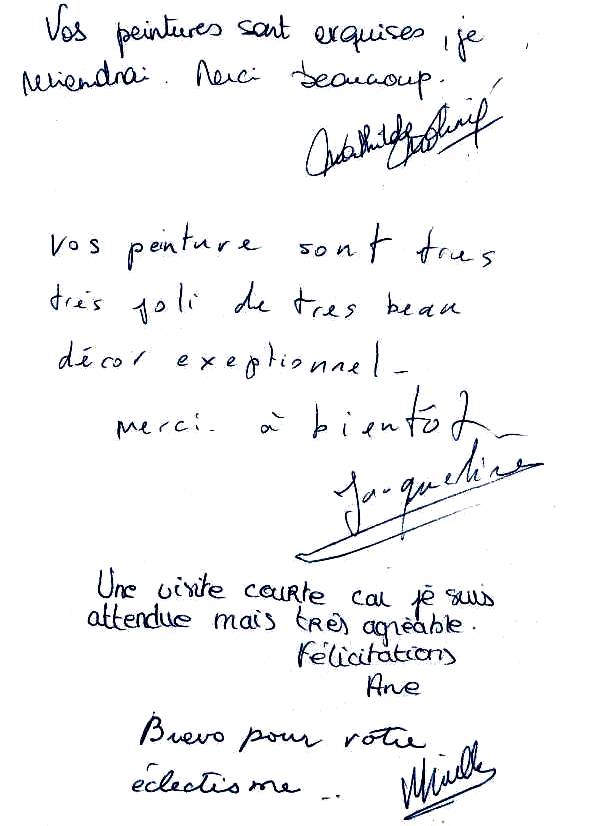 Vos peintures sont exquises, je
reviendrai. Merci beaucoup.
Mathilde
Vos peinture sont tres
très joli de tres beau
décor exeptionnel -
merci - à bientôt -
Jacqueline
Une visite courte car je suis
attendue mais tRès agréable.
Félicitations
Ane
Bravo pour votre
éclectisme ...